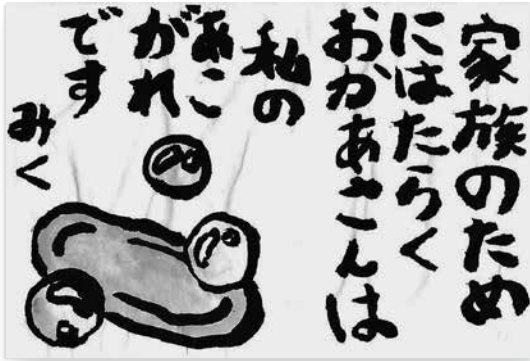 家族のため
にはたらく
おかあさんは
私の
あこ
がれ
です
みく